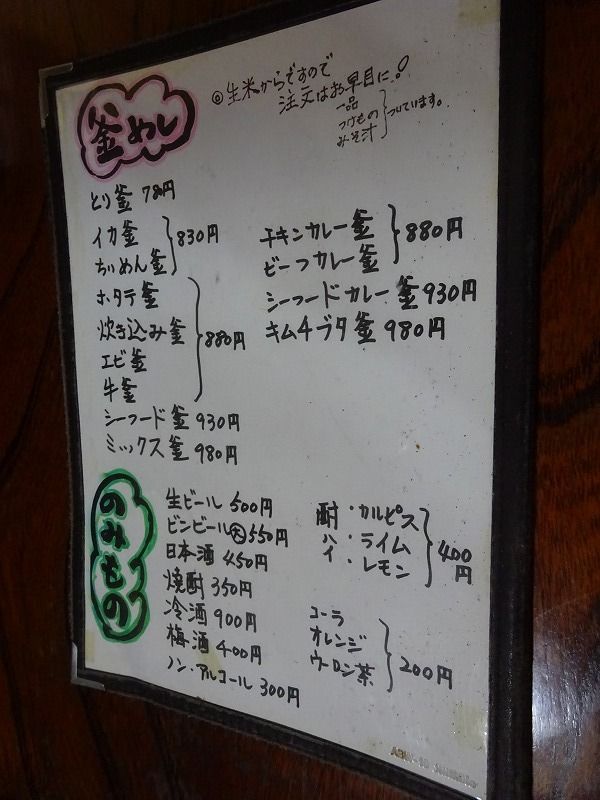 釜めし
◎生米からですので
注文はお早目に!
一品
つけもの
みそ汁
ついています。
とり釜 780円
イカ釜
ちりめん釜
830円
ホタテ釜
炊き込み釜
エビ釜
牛釜
880円
シーフード釜 930円
ミックス釜 980円
チキンカレー釜
ビーフカレー釜
880円
シーフードカレー釜 930円
キムチブタ釜 980円
のみもの
生ビール 500円
ビンビール大 550円
日本酒 450円
焼酎 350円
冷酒 900円
梅酒 400円
ノン・アルコール 300円
酎・カルピス
ハ・ライム
イ・レモン
400円
コーラ
オレンジ
ウーロン茶
200円